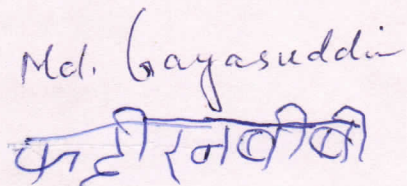 Md. Gayasuddin
फहीरनबीबी